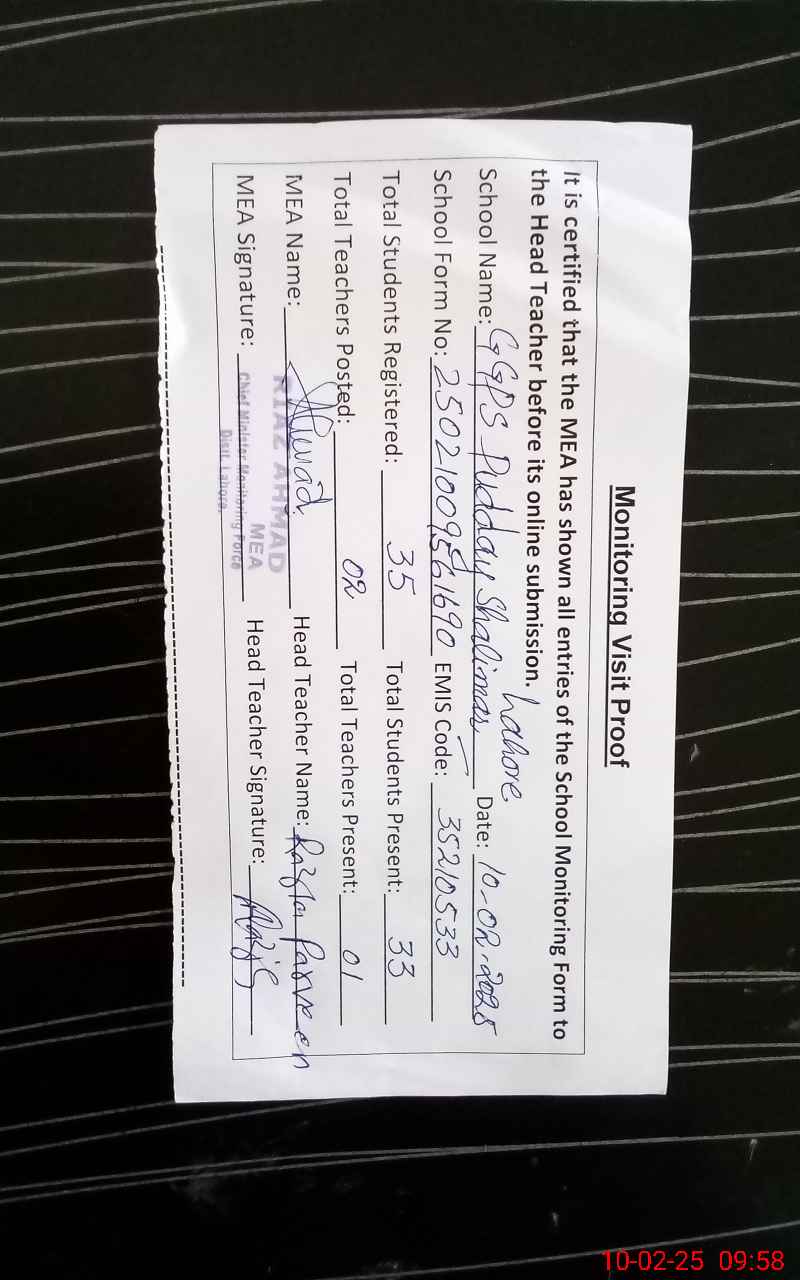 Monitoring Visit Proof
It is certified that the MEA has shown all entries of the School Monitoring Form to
the Head Teacher before its online submission.
Lahore
School Name: GGPS Pudday Shalimar Date: 10-02-2025
School Form No: 25021009561690 EMIS Code: 35210533
Total Students Registered: 35 Total Students Present: 33
Total Teachers Posted: 02 Total Teachers Present: 01
MEA Name: Head Teacher Name: Parveen
RIAZ AHMAD
MEA
MEA Signature: Head Teacher Signature:
Chief Minister Monitoring Force
Distt. Lahore.
10-02-25 09:58